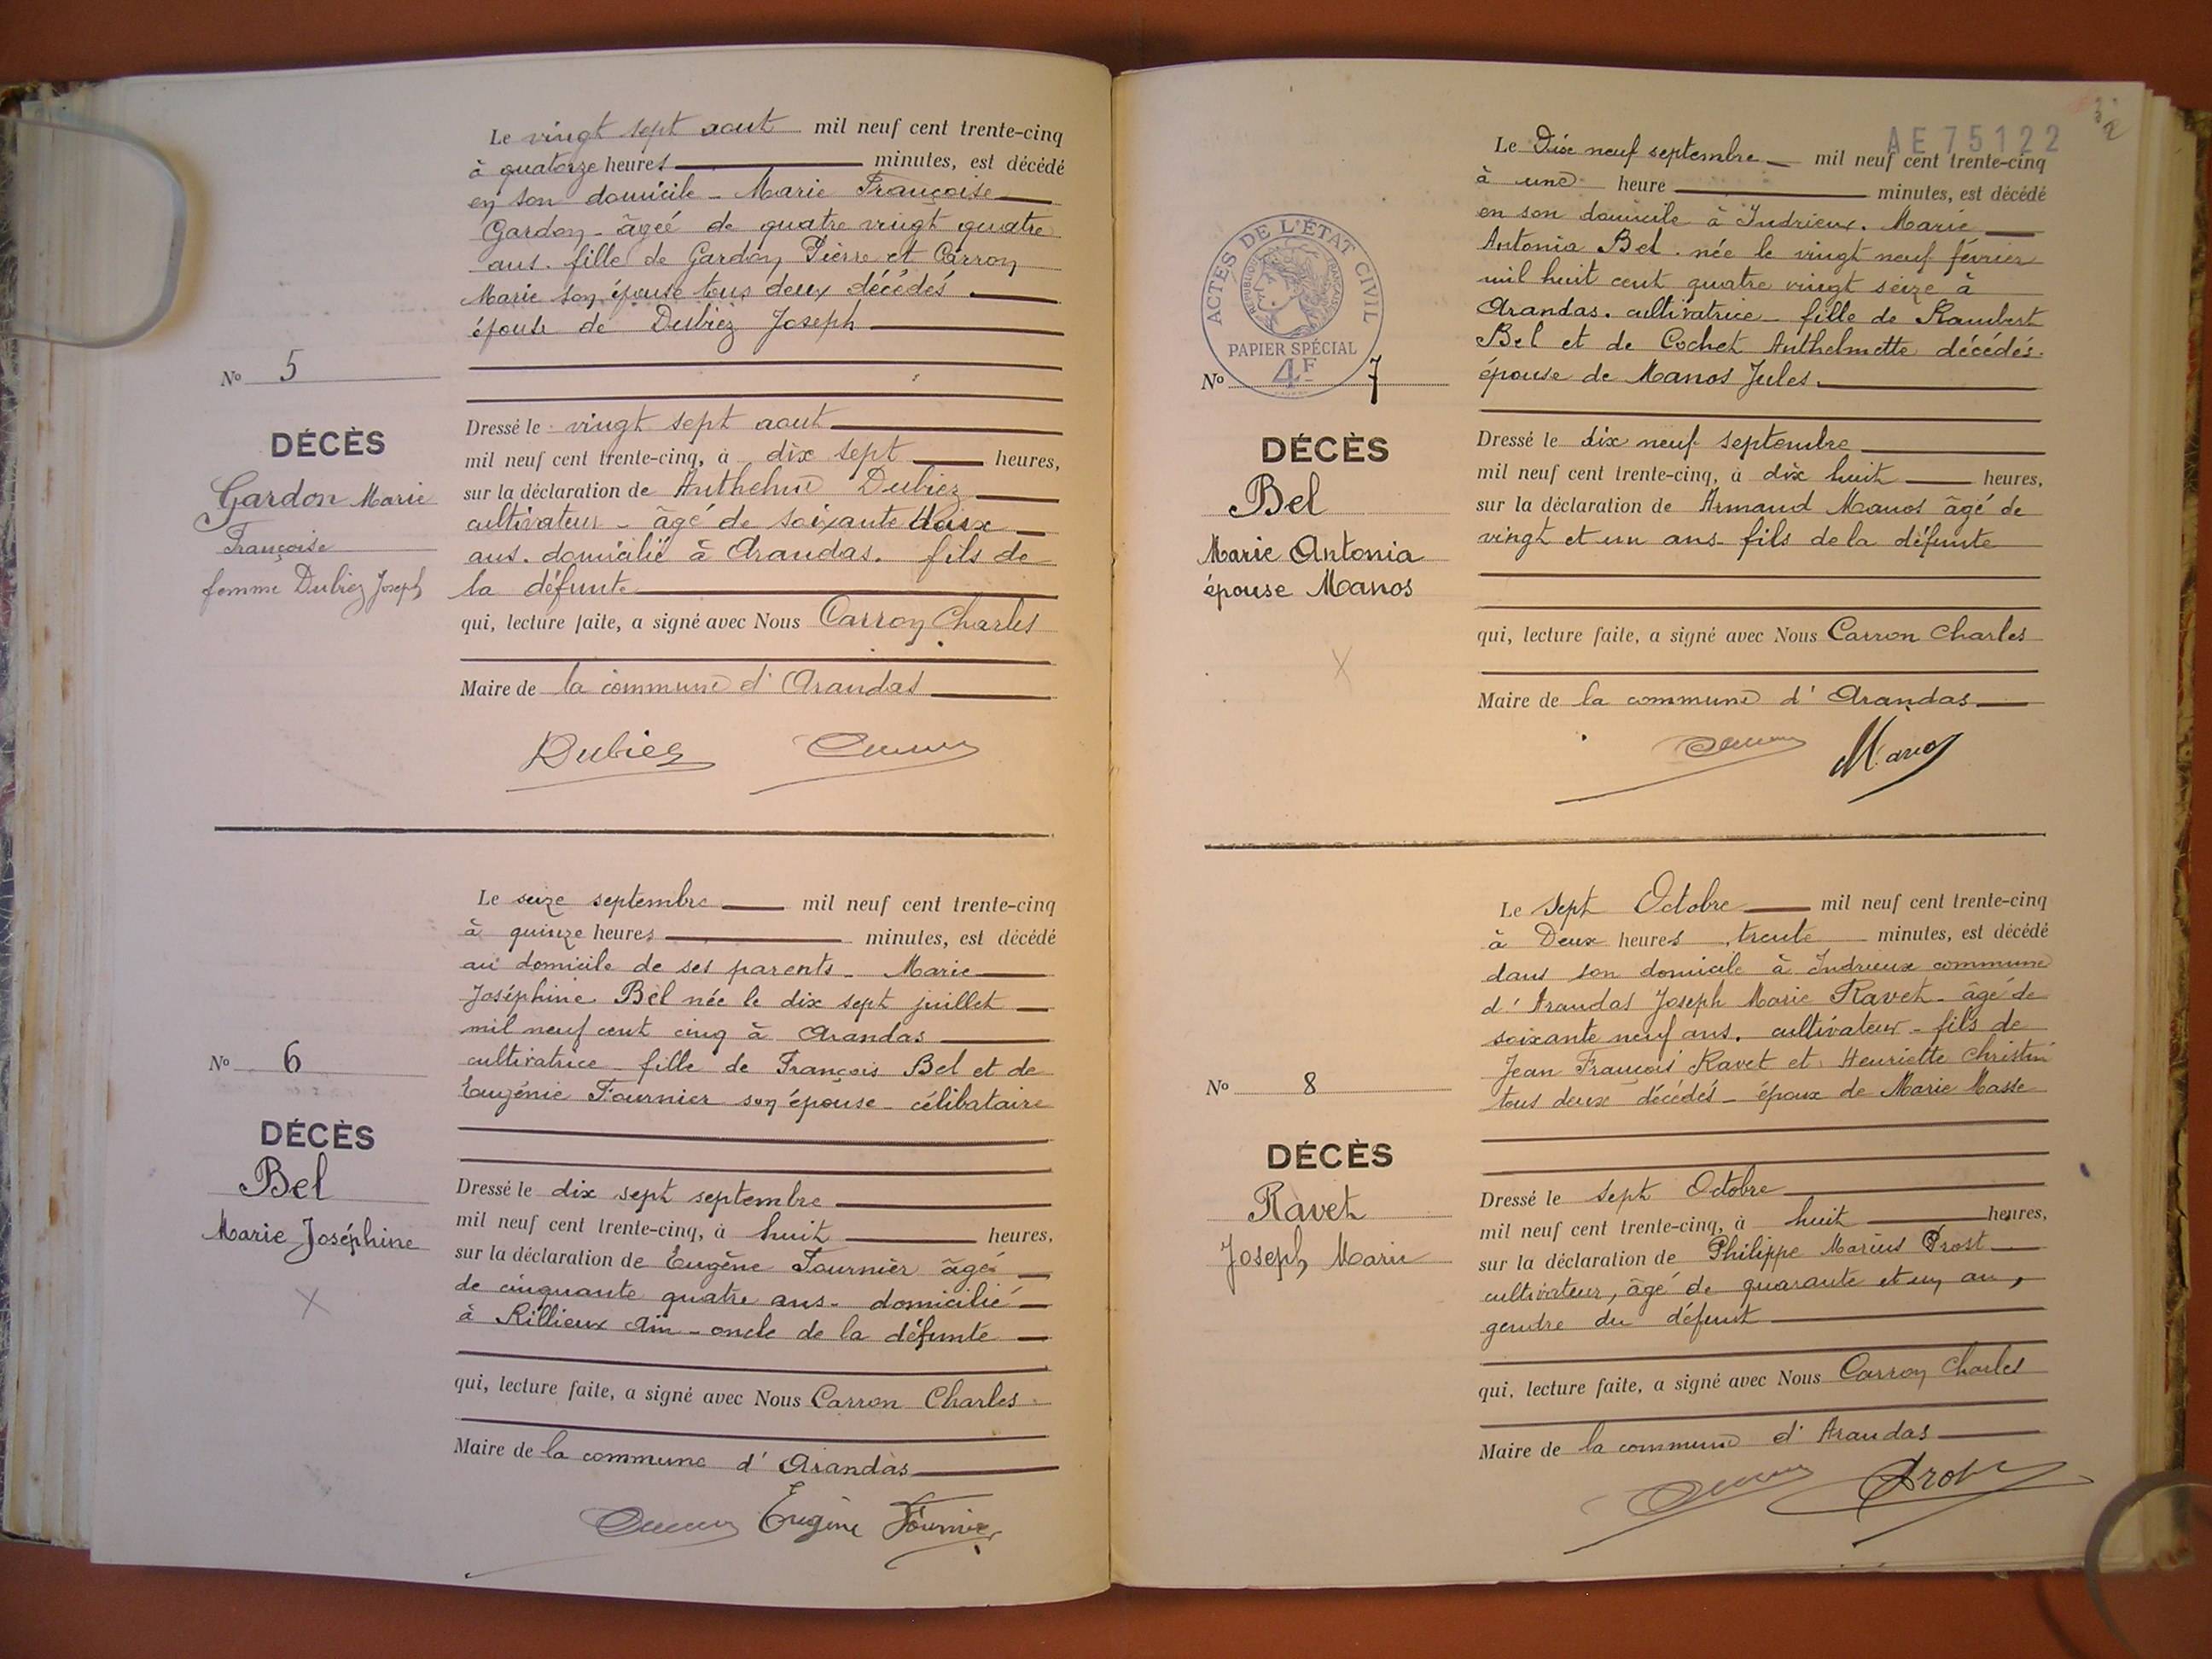 Le vingt sept aout mil neuf cent trente-cinq
à quatorze heures minutes, est décédé
en son domicile - Marie Françoise
Gardon - âgée de quatre vingt quatre
ans. fille de Gardon Pierre et Carron
Marie son épouse tous deux décédés
épouse de Dubiez Joseph
No 5
DÉCÈS
Gardon Marie
Françoise
femme Dubiez Joseph
Dressé le vingt sept aout
mil neuf cent trente-cinq, à dix sept heures,
sur la déclaration de Anthelme Dubiez
cultivateur - âgé de soixante
ans. domicilié à Arandas. fils de
la défunte
qui, lecture faite, a signé avec Nous Carron Charles
Maire de la commune d' Arandas
Dubiez
Le seize septembre mil neuf cent trente-cinq
à quinze heures minutes, est décédé
au domicile de ses parents - Marie
Joséphine Bel née le dix sept juillet
mil neuf cent cinq à Arandas
cultivatrice - fille de François Bel et de
Eugénie Fournier son épouse - célibataire
No 6
DÉCÈS
Bel
Marie Joséphine
Dressé le dix sept septembre
mil neuf cent trente-cinq, à huit heures,
sur la déclaration de Eugène Fournier âgé
de cinquante quatre ans - domicilié
à Rillieux Ain - oncle de la défunte
qui, lecture faite, a signé avec Nous Carron Charles
Maire de la commune d' Arandas
Eugène Fournier
AE75122
Le Dix neuf septembre mil neuf cent trente-cinq
à une heure minutes, est décédé
en son domicile à Indrieux. Marie
Antonia Bel. née le vingt neuf février
mil huit cent quatre vingt seize à
Arandas. cultivatrice - fille de Rambert
Bel et de Cochet Anthelmette décédés.
épouse de Manos Jules
ACTES DE L'ÉTAT CIVIL
RÉPUBLIQUE FRANÇAISE
PAPIER SPÉCIAL
4F
No 7
DÉCÈS
Bel
Marie Antonia
épouse Manos
Dressé le dix neuf septembre
mil neuf cent trente-cinq, à dix huit heures,
sur la déclaration de Armand Manos âgé de
vingt et un ans - fils de la défunte
qui, lecture faite, a signé avec Nous Carron Charles
Maire de la commune d' Arandas
Manos
Le Sept Octobre mil neuf cent trente-cinq
à Deux heures trente minutes, est décédé
dans son domicile à Indrieux commune
d' Arandas Joseph Marie Ravet - âgé de
soixante neuf ans. cultivateur - fils de
Jean François Ravet et Henriette Christin
tous deux décédés - époux de Marie Masse
No 8
DÉCÈS
Ravet
Joseph Marie
Dressé le sept Octobre
mil neuf cent trente-cinq, à huit heures,
sur la déclaration de Philippe Marius Prost
cultivateur, âgé de quarante et un an,
gendre du défunt
qui, lecture faite, a signé avec Nous Carron Charles
Maire de la commune d' Arandas
Prost